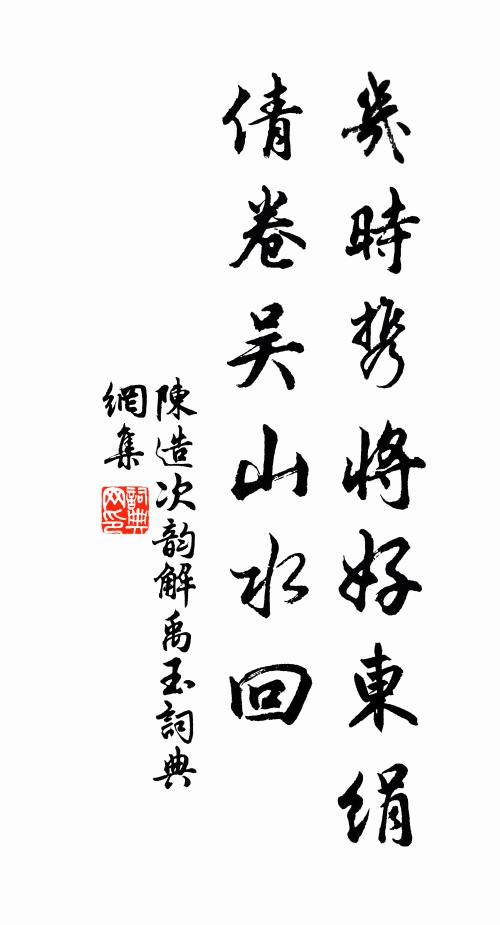 幾時携將好東絹
倩卷吴山水回
陳造次韵解禹玉詞典
網集
詞典網印